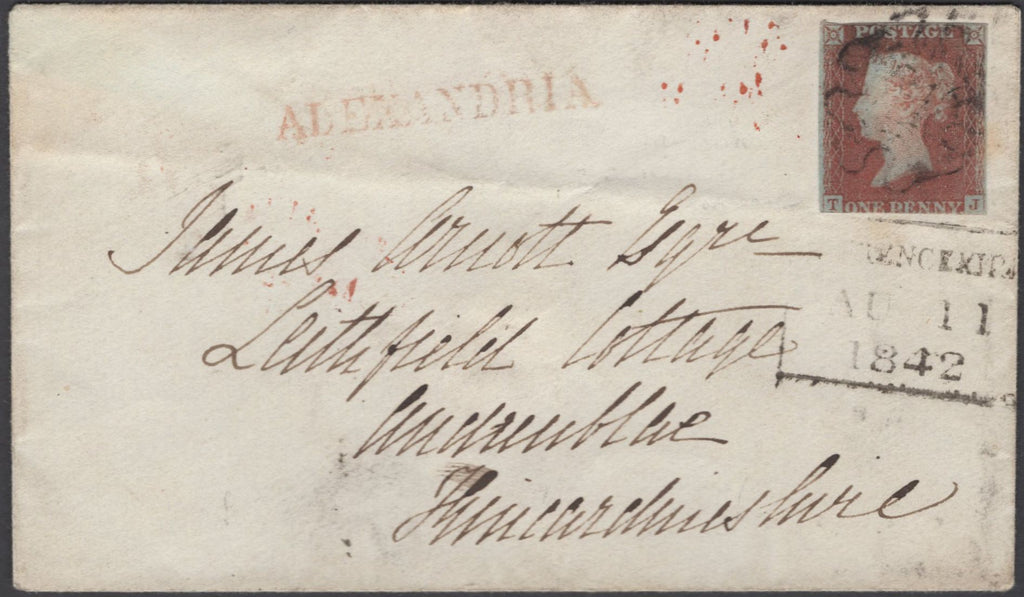 ALEXANDRIA
POSTAGE
T ONE PENNY J
James Arnott Esqre
Leithfield Cottage
Auchenblae
Kincardineshire
AU 11
1842